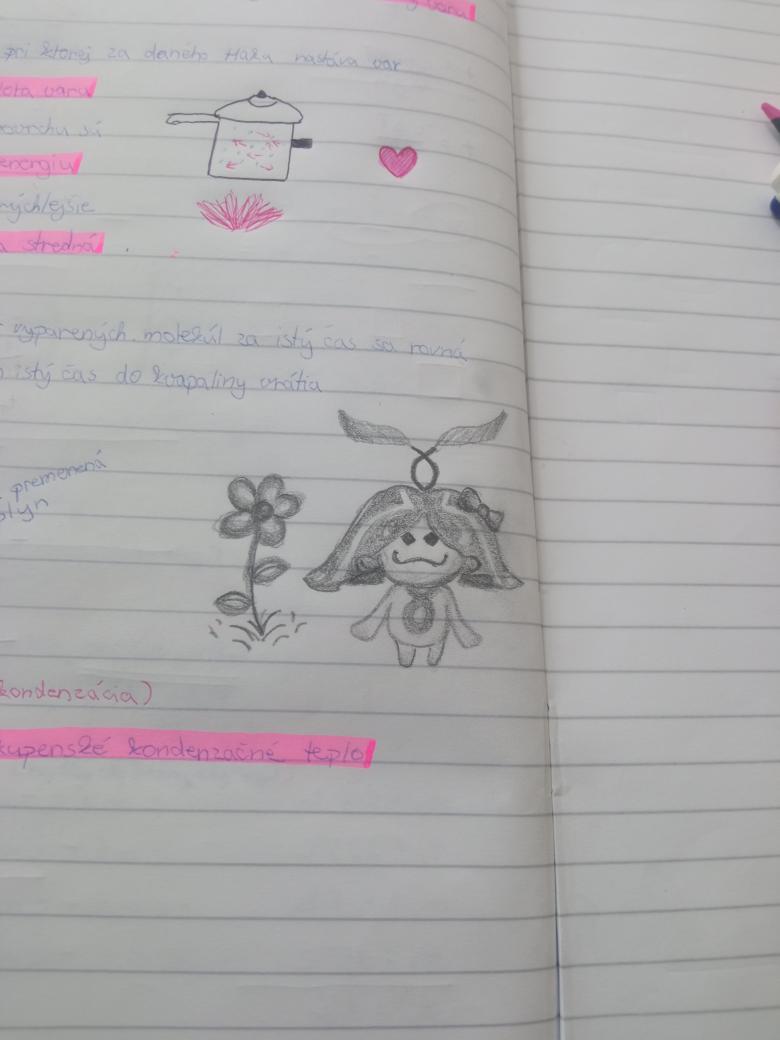 varu
pri ktorej za daného tlaku nastáva var
lota varu
povrchu sú
energiu
rýchlejšie
a stredná
vyparených molekúl za istý čas sa rovná
istý čas do kvapaliny vrátia
premenená
plyn
kondenzácia)
kupenské kondenzačné teplo